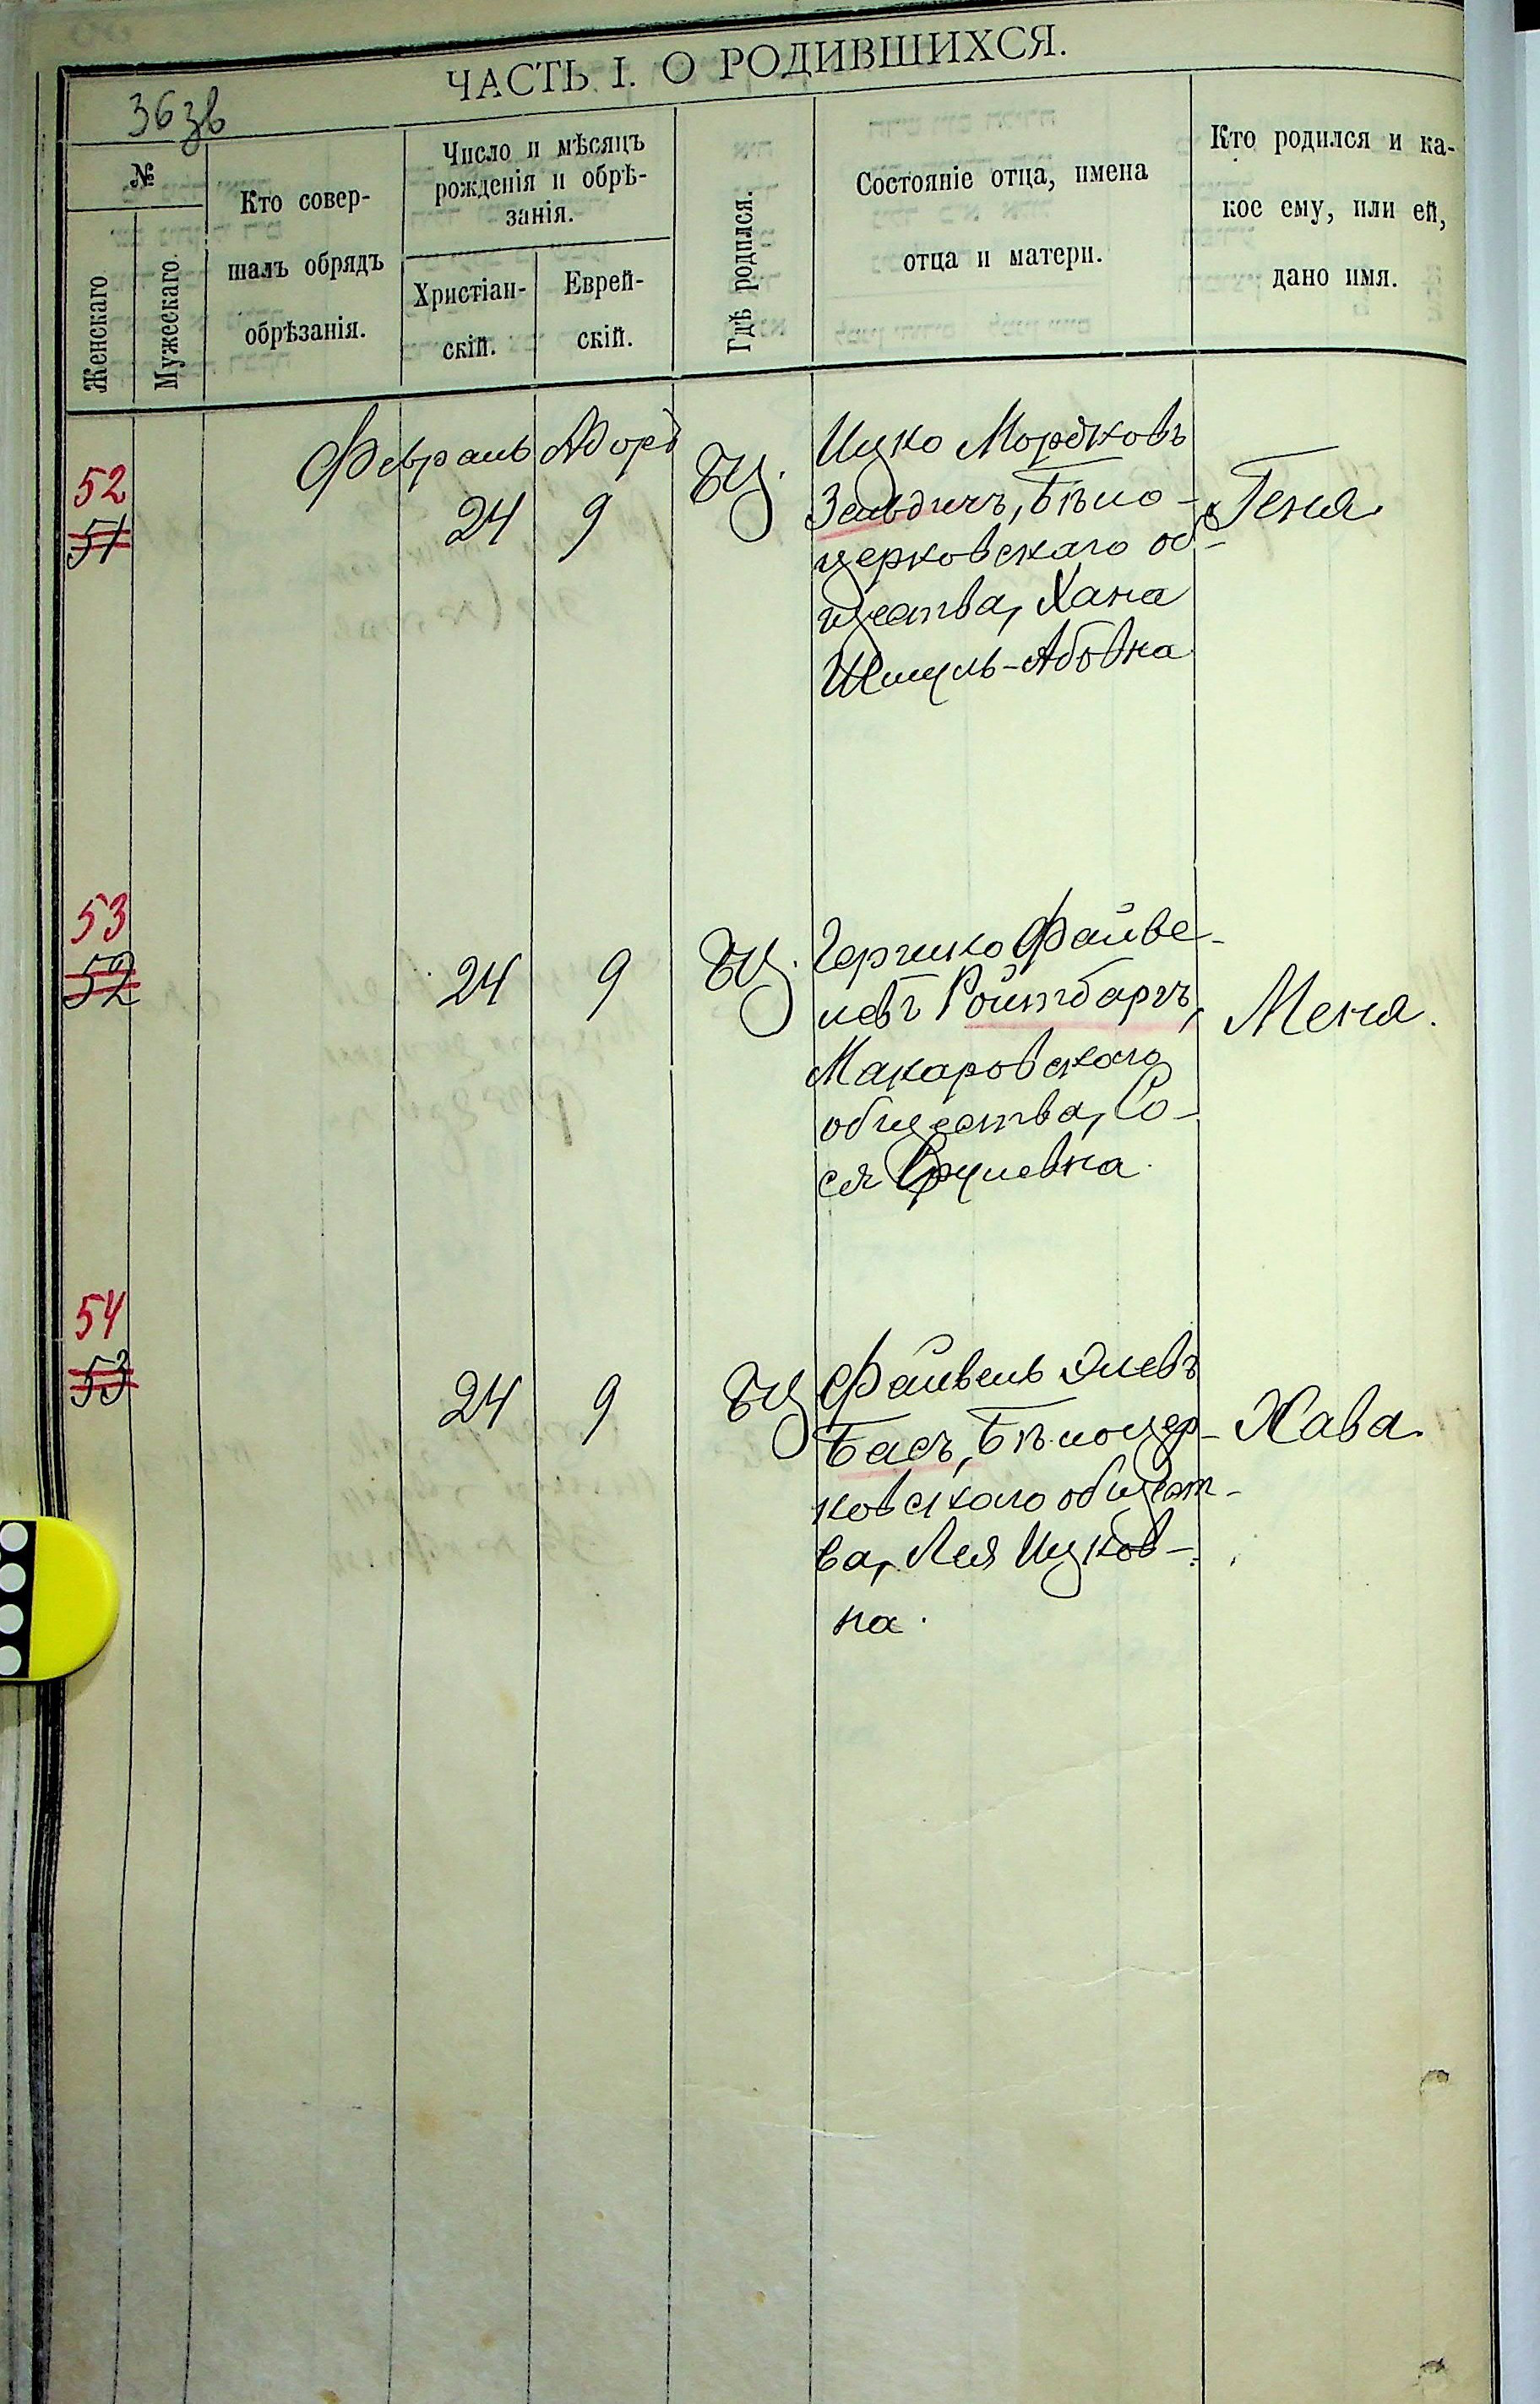 ЧАСТЬ I. О РОДИВШИХСЯ.
36 зв
№
Женскаго
Мужескаго.
Кто совер-
шалъ обрядъ
обрѣзанія.
Число и мѣсяцъ
рожденія и обрѣ-
занія.
Христіан-
скій.
Еврей-
скій.
Гдѣ родился.
Состояніе отца, имена
отца и матери.
Кто родился и ка-
кое ему, или ей,
дано имя.
Февраль Адоръ
52
51
24
9
БЦ.
Ицко Мордковъ
Зельдичъ, Бѣло-
церковскаго об-
щества, Хана
Шмуль-Абовна
Геня.
53
52
24
9
БЦ.
Гершко Файве-
левъ Ройтбаргъ,
Макаровскаго
общества, Со-
ся Срулевна.
Меня.
54
53
24
9
БЦ
Файвель Элевъ
Басъ, Бѣлоцер-
ковскаго общест-
ва, Лея Ицков-
на.
Хава.